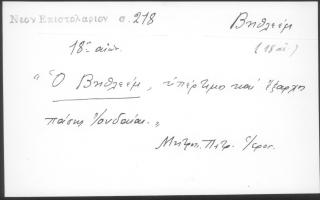 Νεον Επιστολαριον σ. 218 Βηθλεέμ
18ος αἰών. (18 αἰ.)
"Ὁ Βηθλεέμ, ὑπέρτιμος καὶ ἔξαρχος
πάσης Ἰουδαίας"
Μητροπ. Πετρ.